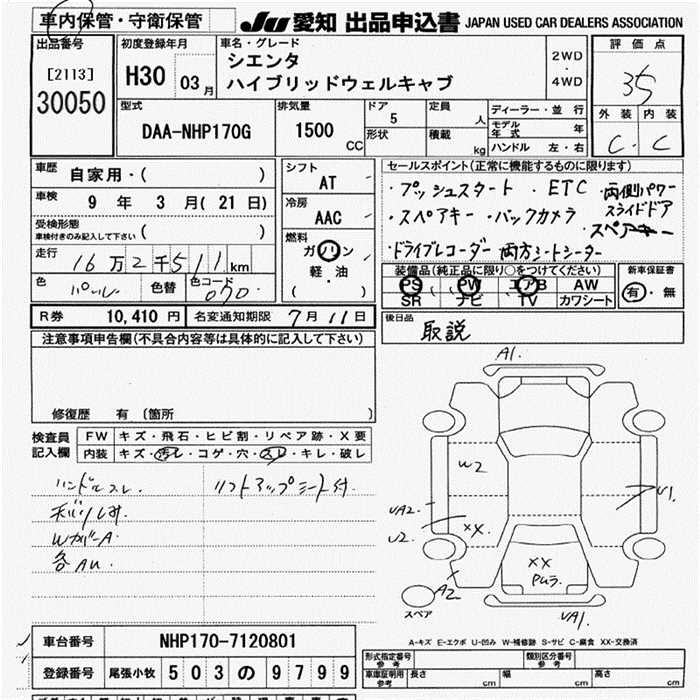 車内保管・守衛保管
JU 愛知 出品申込書 JAPAN USED CAR DEALERS ASSOCIATION
出品番号
[2113]
30050
初度登録年月
H30 03月
車名・グレード
シエンタ
ハイブリッドウェルキャブ
2WD
・
4WD
評価点
35
外装 内装
C C
型式
DAA-NHP170G
排気量
1500 CC
ドア
5
形状
定員
人
積載
kg
ディーラー・並行
モデル年式 年
ハンドル 左・右
車歴
自家用・( )
車検
9 年 3 月( 21 日)
受検形態
車検付きのみ記入して下さい ( )
走行
16万2千511km
色 パール 色替 色コード 070
シフト
AT
冷房
AAC
燃料
ガソリン
軽・油
( )
セールスポイント(正常に機能するものに限ります)
・プッシュスタート ・ETC ・両側パワースライドドア
・スペアキー ・バックカメラ
スペアキー
・ドライブレコーダー 両方シートシーター
装備品(純正品に限り○をつけてください)
PS PW エアB AW
SR ナビ TV カワシート
新車保証書
有・無
R券 10,410 円 名変通知期限 7月11日
後日品
取説
注意事項申告欄(不具合内容等は具体的に記入して下さい)
修復歴 有 〔箇所 〕
検査員
記入欄
FW キズ・飛石・ヒビ割・リペア跡・X要
内装 キズ・汚レ・コゲ・穴・スレ・キレ・破レ
ハンドルスレ. リフトアップシート付.
WカバーA
各AU.
A1.
W2
UA2.
U2.
XX
XX
A2
U1.
UA1.
スペア
A-キズ E-エクボ U-凹み W-補修跡 S-サビ C-腐食 XX-交換済
車台番号 NHP170-7120801
登録番号 尾張小牧 503の9799
型式指定番号
参考
類別区分番号
参考
車庫証明用
参考
長さ cm 幅 cm 高さ cm